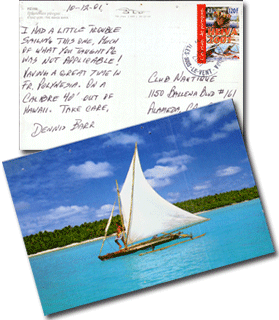 10-12-01
I HAD A LITTLE TROUBLE
SAILING THIS ONE, MUCH
OF WHAT YOU TAUGHT ME
WAS NOT APPLICABLE!
HAVING A GREAT TIME IN
FR. POLYNESIA. ON A
CALIBRE 40' OUT OF
HAWAII. TAKE CARE,
DENNIS BARR
120F
CLUB NAUTIQUE
1150 BALLENA BLVD #161
ALAMEDA CA